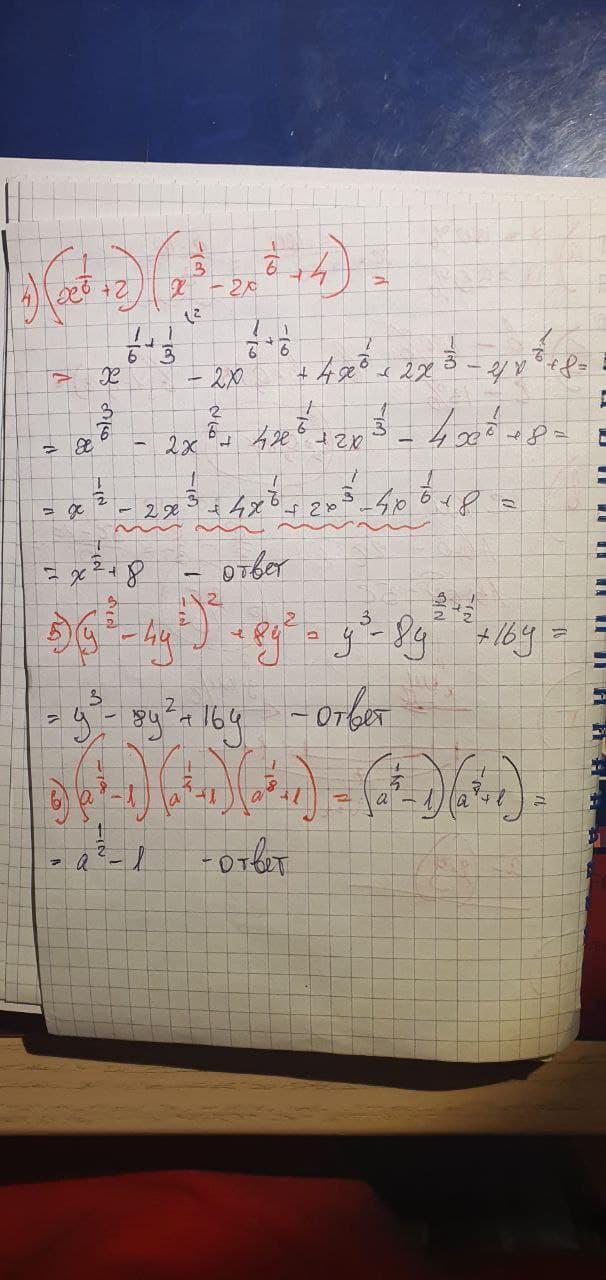 4) (x^{1/6} + 2)(x^{1/3} - 2x^{1/6} + 4) =
= x^{1/6 + 1/3} - 2x^{1/6 + 1/6} + 4x^{1/6} + 2x^{1/3} - 4x^{1/6} + 8 =
= x^{3/6} - 2x^{2/6} + 4x^{1/6} + 2x^{1/3} - 4x^{1/6} + 8 =
= x^{1/2} - 2x^{1/3} + 4x^{1/6} + 2x^{1/3} - 4x^{1/6} + 8 =
= x^{1/2} + 8 - ответ
5) (y^{3/2} - 4y^{1/2})^2 + 8y^2 = y^3 - 8y^{3/2 + 1/2} + 16y =
= y^3 - 8y^2 + 16y - ответ
6) (a^{1/8} - 1)(a^{1/4} + 1)(a^{1/8} + 1) = (a^{1/4} - 1)(a^{1/4} + 1) =
= a^{1/2} - 1 - ответ